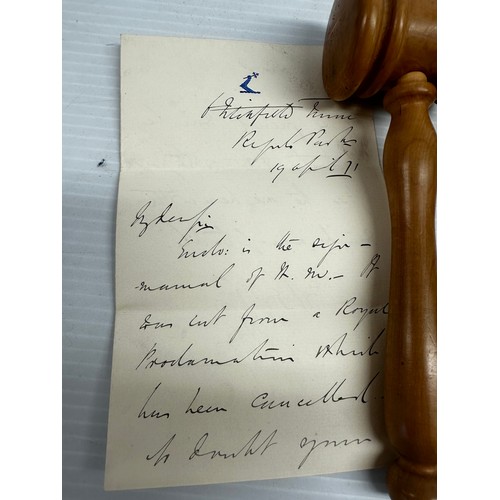 Regents Park
19 April 71
My dear Sir
Enclo: is the sign-
manual of H. M. - It
was cut from a Royal
Proclamation which
has been cancelled -
No doubt